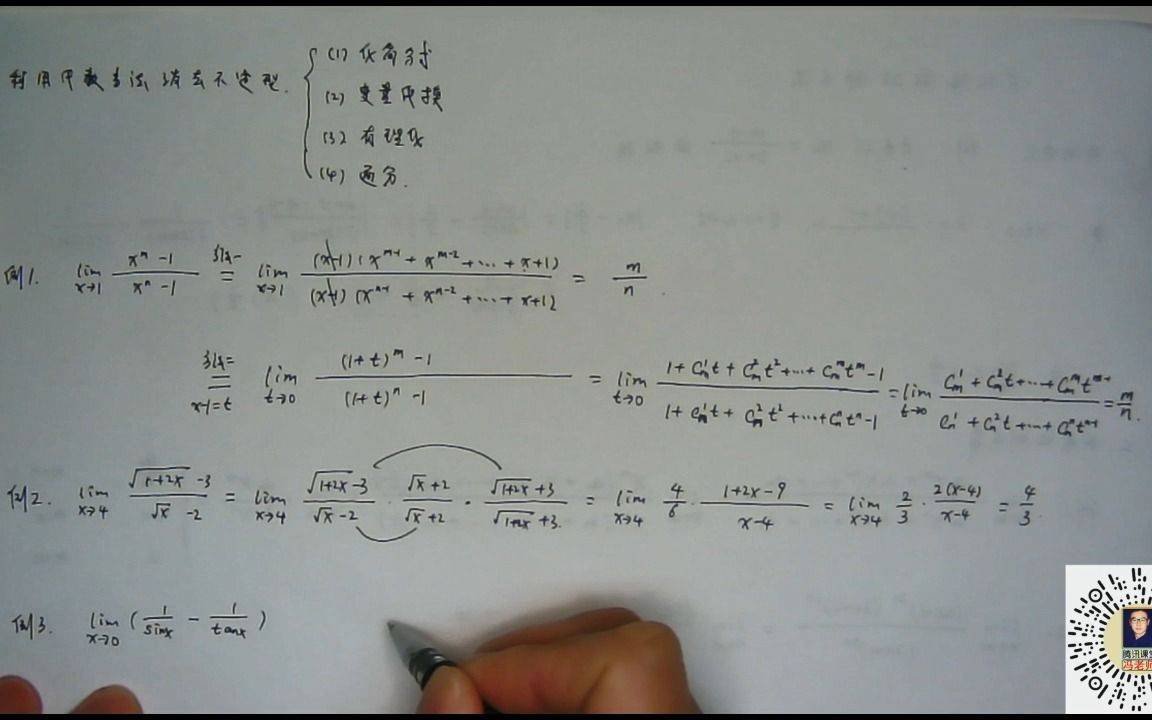 利用代数方法消去不定型.
(1) 化简分式
(2) 变量代换
(3) 有理化
(4) 通分.
例1. lim x→1 (x^m -1)/(x^n -1) =(法一) lim x→1 ((x-1)(x^{m-1} + x^{m-2} + ... + x+1))/((x-1)(x^{n-1} + x^{n-2} + ... + x+1)) = m/n.
=(法二, x-1=t) lim t→0 ((1+t)^m -1)/((1+t)^n -1) = lim t→0 (1+C_m^1 t + C_m^2 t^2 + ... + C_m^m t^m -1)/(1+C_n^1 t + C_n^2 t^2 + ... + C_n^n t^n -1) = lim t→0 (C_m^1 + C_m^2 t + ... + C_m^m t^{m-1})/(C_n^1 + C_n^2 t + ... + C_n^n t^{n-1}) = m/n.
例2. lim x→4 (√(1+2x) -3)/(√x -2) = lim x→4 (√(1+2x) -3)/(√x -2) · (√x +2)/(√x +2) · (√(1+2x) +3)/(√(1+2x) +3) = lim x→4 4/6 · (1+2x-9)/(x-4) = lim x→4 2/3 · 2(x-4)/(x-4) = 4/3.
例3. lim x→0 (1/sinx - 1/tanx)
腾讯课堂
冯老师